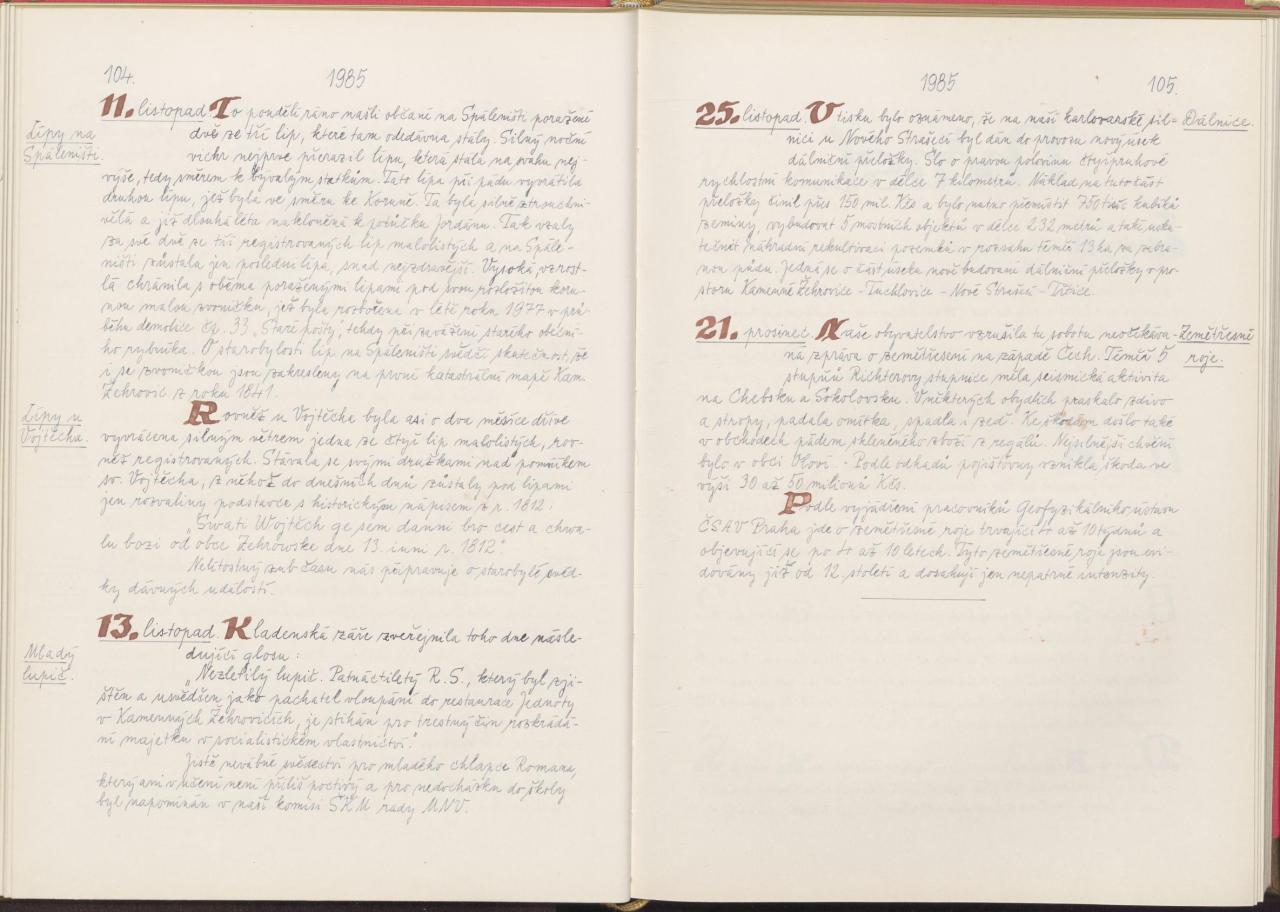 104.
1985
Lípy na
Spáleništi.
11. listopad. To pondělí ráno našli občané na Spáleništi poražené
dvě ze tří lip, které tam odedávna stály. Silný noční
vichr nejprve přerazil lípu, která stála na svahu nej-
výše, tedy směrem k bývalým statkům. Tato lípa při pádu vyvrátila
druhou lípu, jež byla ve směru ke Koruně. Ta byla silně ztrouchni-
vělá a již dlouhá léta nakloněná k potůčku Jordánu. Tak vzaly
za své dvě ze tří registrovaných lip malolistých a na Spále-
ništi zůstala jen poslední lípa, snad nejzdravější. Vysoká vzrost-
lá chránila s oběma poraženými lípami pod svou rozložitou koru-
nou malou zvoničku, jež byla rozbořena v létě roku 1977 v prů-
běhu demolice čp. 33, „Staré pošty", tehdy při zavážení starého obecní-
ho rybníka. O starobylosti lip na Spáleništi svědčí skutečnost, že
i se zvoničkou jsou zakresleny na první katastrální mapě Kam.
Žehrovic z roku 1841.
Lípy u
Vojtěcha.
Rovněž u Vojtěcha byla asi o dva měsíce dříve
vyvrácena silným větrem jedna ze čtyř lip malolistých, rov-
něž registrovaných. Stávala se svými družkami nad pomníkem
sv. Vojtěcha, z něhož do dnešních dnů zůstaly pod lipami
jen rozvaliny podstavce s historickým nápisem z r. 1812:
„Swati Wojtěch ge sem danni bro cest a chwa-
lu bozi od obce Zehrowske dne 13. inni r. 1812."
Nelítostný zub času nás připravuje o starobylé svěd-
ky dávných událostí.
Mladý
lupič.
13. listopad. Kladenská záře zveřejnila toho dne násle-
dující glosu:
„Nezletilý lupič. Patnáctiletý R. S., který byl zji-
štěn a usvědčen jako pachatel vloupání do restaurace Jednoty
v Kamenných Žehrovicích, je stíhán pro trestný čin rozkrádá-
ní majetku v socialistickém vlastnictví."
Jistě nevábné svědectví pro mladého chlapce Romana,
který ani v učení není příliš poctivý a pro nedocházku do školy
byl napomínán v naší komisi SKM rady MNV.
1985
105.
25. listopad. V tisku bylo oznámeno, že na naší karlovarské sil=
nici u Nového Strašecí byl dán do provozu nový úsek
dálniční přeložky. Šlo o pravou polovinu čtyřpruhové
rychlostní komunikace v délce 7 kilometrů. Náklad na tuto část
přeložky činil přes 150 mil. Kčs a bylo nutno přemístit 750 tisíc kubíků
zeminy, vybudovat 5 mostních objektů v délce 232 metrů a také usku-
tečnit náhradní rekultivaci pozemků v rozsahu téměř 13 ha za zabra-
nou půdu. Jedná se o část úseku nově budované dálniční přeložky v pro-
storu Kamenné Žehrovice - Tuchlovice - Nové Strašecí - Třtice.
Dálnice.
21. prosinec. Naše obyvatelstvo vzrušila tu sobotu neočekáva-
ná zpráva o zemětřesení na západě Čech. Téměř 5
stupňů Richterovy stupnice měla seismická aktivita
na Chebsku a Sokolovsku. V některých obydlích praskalo zdivo
a stropy, padala omítka, spadla i zeď. Ke škodám došlo také
v obchodech pádem skleněného zboží z regálů. Nejsilnější chvění
bylo v obci Oloví. - Podle odhadů pojišťovny vznikla škoda ve
výši 30 až 50 milionů Kčs.
Zemětřesné
roje.
Podle vyjádření pracovníků Geofyzikálního ústavu
ČSAV Praha jde o zemětřesné roje trvající 4 až 10 týdnů a
objevující se po 4 až 10 letech. Tyto zemětřesné roje jsou evi-
dovány již od 12. století a dosahují jen nepatrné intenzity.